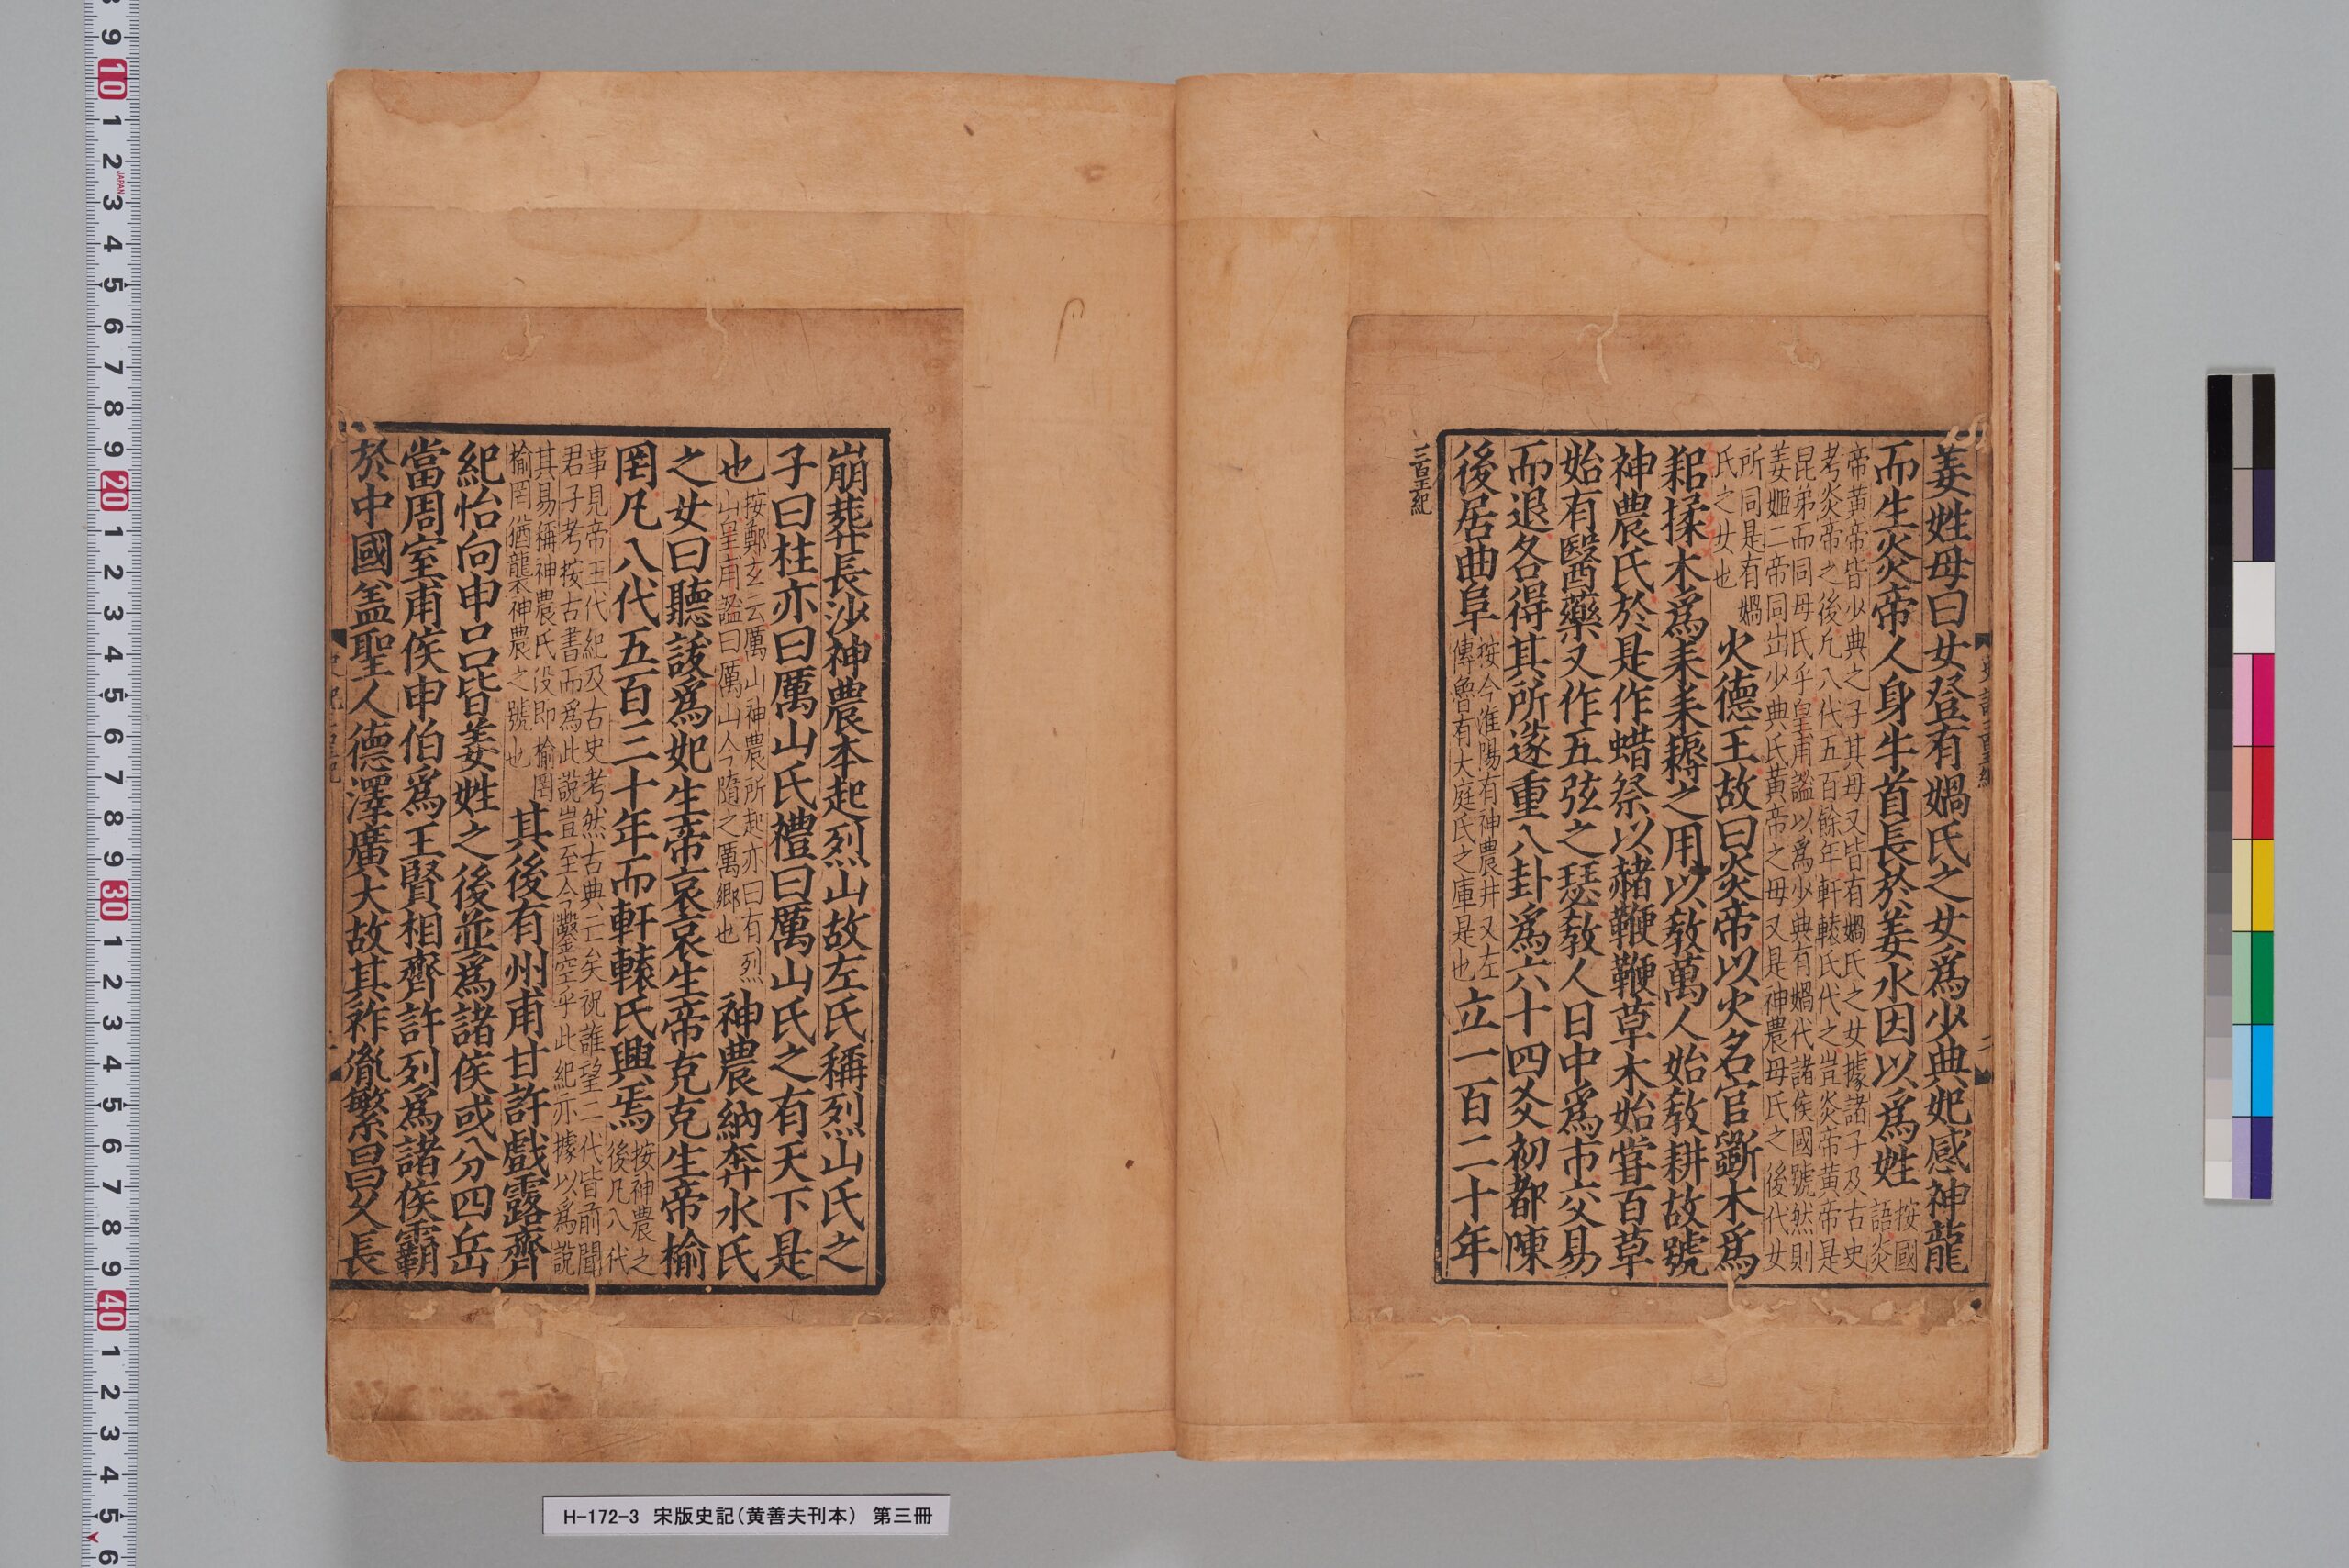 姜姓母曰女登有媧氏之女爲少典妃感神龍
而生炎帝人身牛首長於姜水因以爲姓
按國
語炎
帝黃帝皆少典之子其母又皆有媧氏之女據諸子及古史
考炎帝之後凡八代五百餘年軒轅氏代之豈炎帝黃帝是
昆弟而同母氏乎皇甫謐以爲少典有媧代諸侯國號然則
姜姬二帝同出少典氏黃帝之母又是神農母氏之後代女
所同是有媧
氏之女也
火德王故曰炎帝以火名官斵木爲
耜揉木爲耒耒耨之用以敎萬人始敎耕故號
神農氏於是作蜡祭以赭鞭鞭草木始甞百草
始有醫藥又作五弦之瑟敎人日中爲市交易
而退各得其所遂重八卦爲六十四爻初都陳
後居曲阜
按今淮陽有神農井又左
傳魯有大庭氏之庫是也
立一百二十年
三皇王紀
崩葬長沙神農本起烈山故左氏稱烈山氏之
子曰柱亦曰厲山氏禮曰厲山氏之有天下是
也
按鄭玄云厲山神農所起亦曰有烈
山皇甫謐曰厲山今隋之厲郷也
神農納奔水氏
之女曰聽詙爲妃生帝哀哀生帝克克生帝榆
罔凡八代五百三十年而軒轅氏興焉
按神農之
後凡八代
事見帝王代紀及古史考然古典亡矣祝誰望二代皆前聞
君子考按古書而爲此說豈至今鑿空乎此紀亦據以爲說
其易稱神農氏没即榆罔
榆罔猶襲神農之號也
其後有州甫甘許戲露齊
紀怡向申呂皆姜姓之後並爲諸侯或分四岳
當周室甫侯申伯爲王賢相齊許列爲諸侯霸
於中國盖聖人德澤廣大故其祚胤繁昌久長
H-172-3 宋版史記（黄善夫刊本） 第三冊